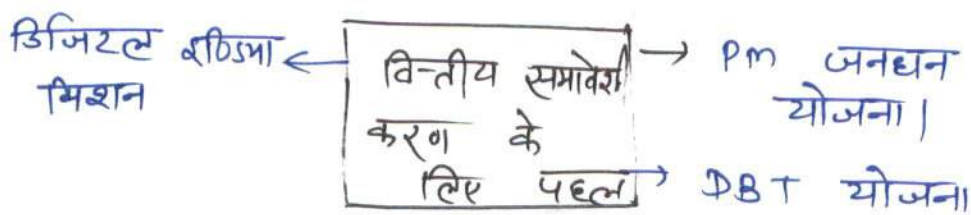 डिजिटल इण्डिया
मिशन
वित्तीय समावेशी
करण के
लिए पहल
PM जनधन
योजना।
DBT योजना